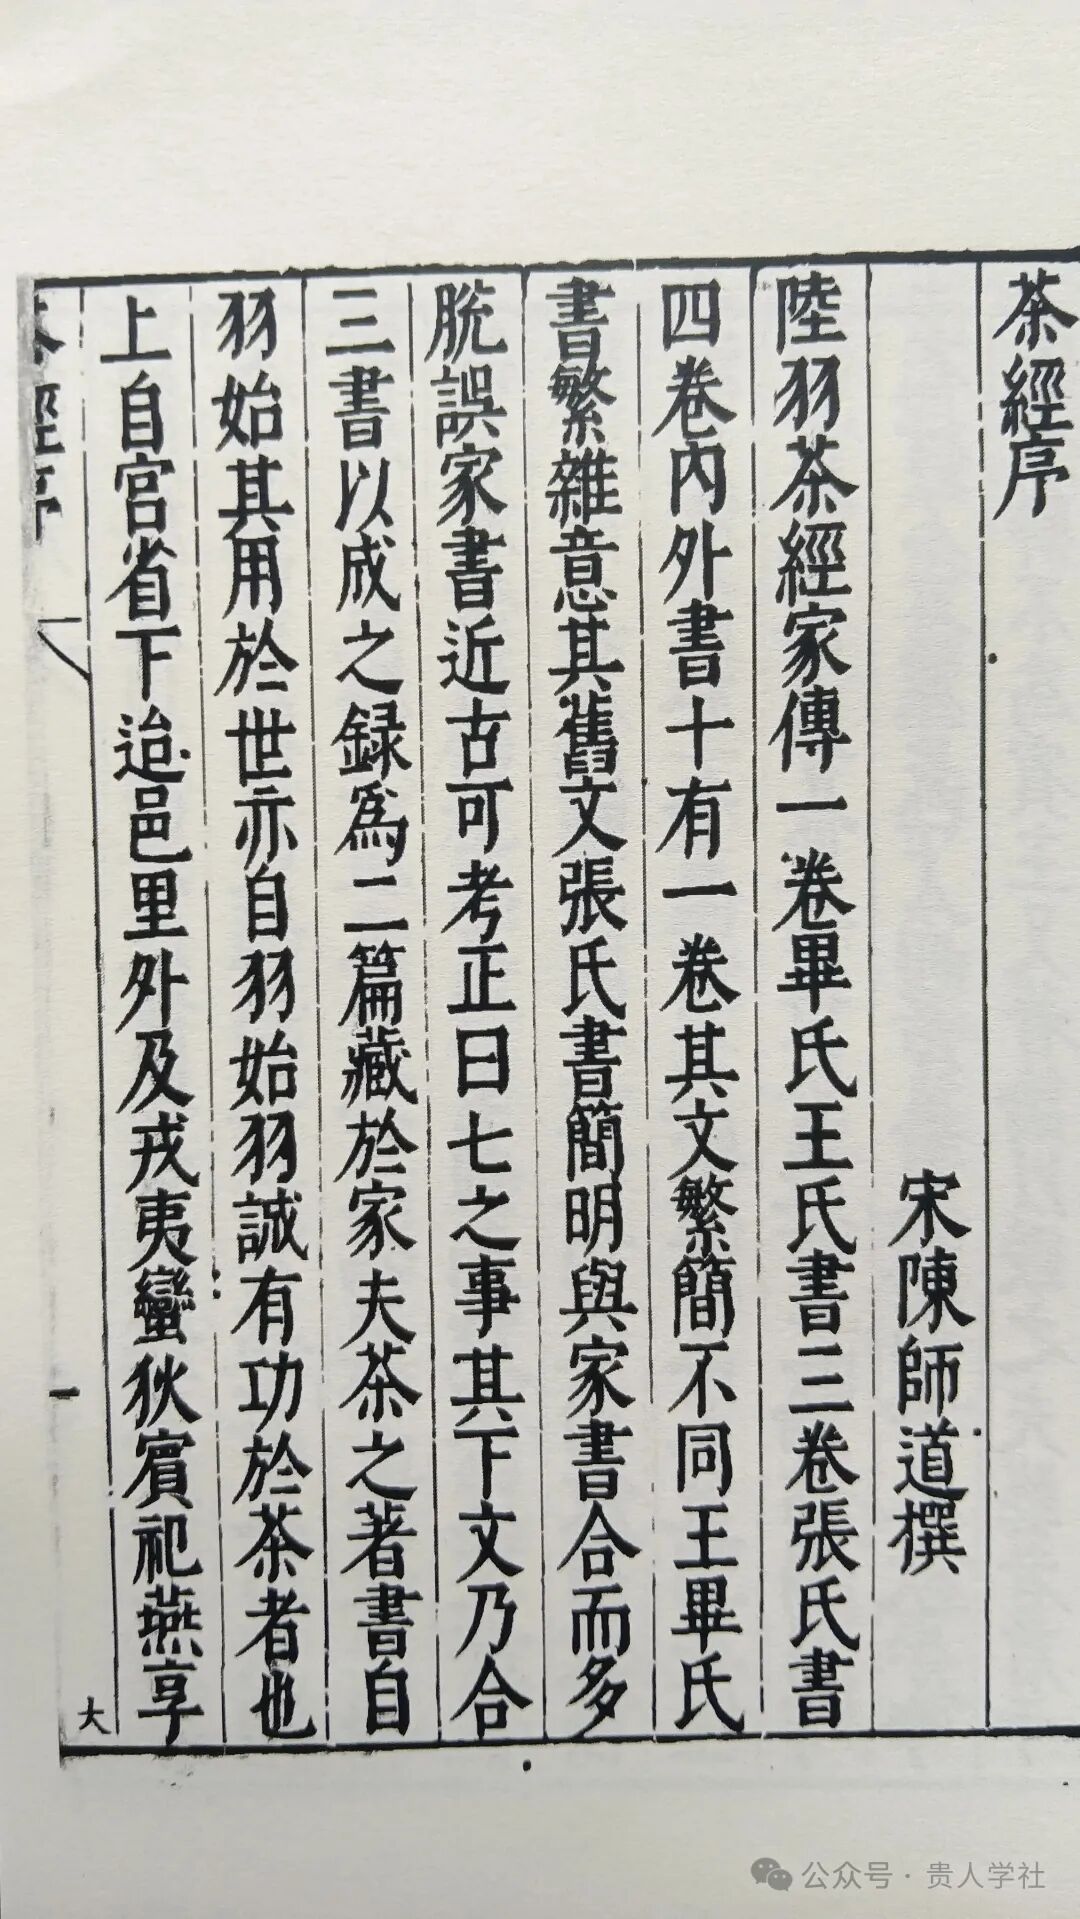 茶經序
宋陳師道撰
陸羽茶經家傳一卷畢氏王氏書三卷張氏書
四卷內外書十有一卷其文繁簡不同王畢氏
書繁雜意其舊文張氏書簡明與家書合而多
脫誤家書近古可考正曰七之事其下文乃合
三書以成之録爲二篇藏於家夫茶之著書自
羽始其用於世亦自羽始羽誠有功於茶者也
上自宮省下迨邑里外及戎夷蠻狄賓祀燕享
茶經序
一
大
公众号·贵人学社